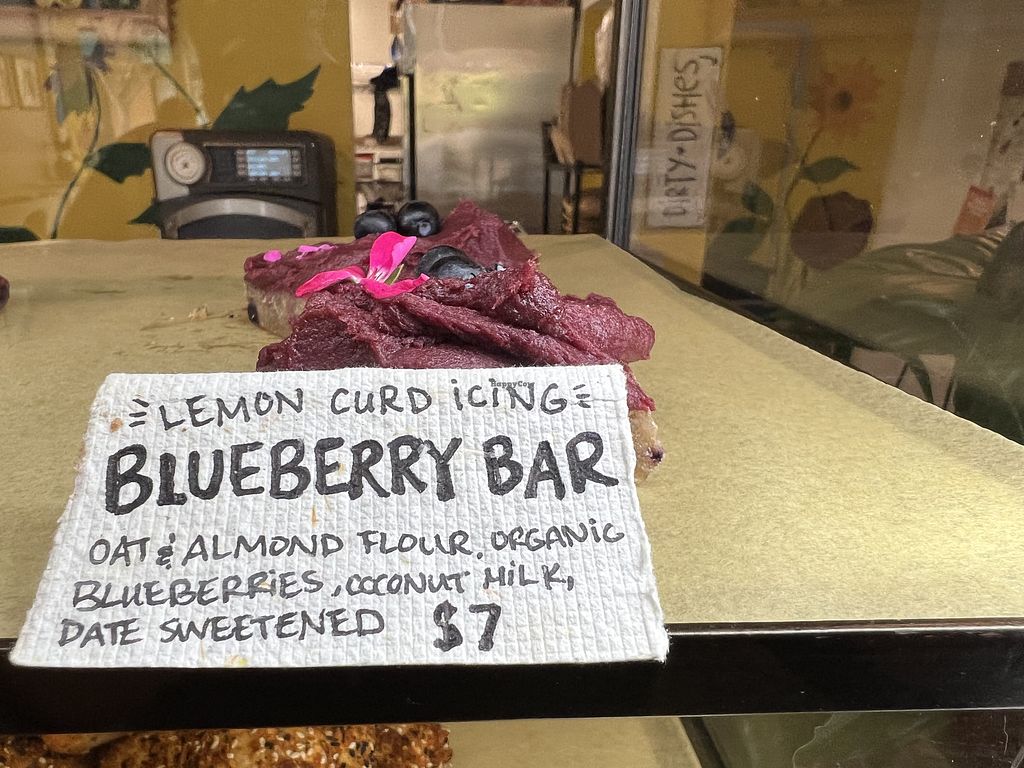 DIRTY • DISHES
HappyCow
LEMON CURD ICING
BLUEBERRY BAR
OAT & ALMOND FLOUR, ORGANIC
BLUEBERRIES, COCONUT MILK,
DATE SWEETENED $7